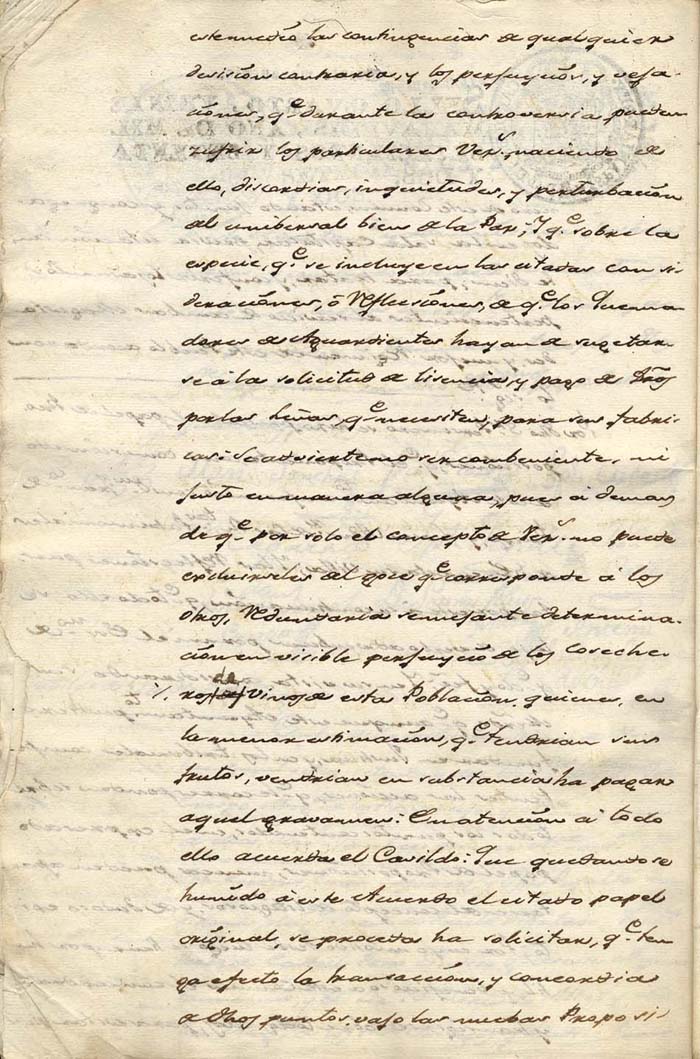 este medio las contingencias de qualquier
decisión contraria, y los perjuyciós, y veja
ciónes, qe. durante la controversia pueden
sufrir los particulares Vezs. naciendo de
ello, discordias, inquietudes, y perturbación
al unibersal bien de la Paz; Y qe. sobre la
especie, qe. se incluye en las citadas consi
deraciónes, ó Reflecsiónes, de qe. los Quema
dores de Aguardientes hayan de sugetar
se á la solicitud de licencia, y pago de Dros
por las Leñas, qe. necesiten, para sus fabri
cas: Se advierte no ser combeniente, ni
justo en manera alguna, pues á demas
de qe. por sólo el concepto de Vezs. no puede
excluirseles del goce qe. corresponde á los
otros, Redundaria semejante determina
ción en visible perjuyció de los coseche
ros de Vinos de esta Población, quienes, en
la menor estimación, qe. tendrian sus
frutos, vendrian en substancia ha pagar
aquel gravamen: En atención á todo
ello acuerda el Cavildo: Que quedando se
hunido á este Acuerdo el citado papel
original, se proceda ha solicitar, qe. ten
ga efecto la transacción, y concordia
de dhos puntos, vajo las nuebas Proposi